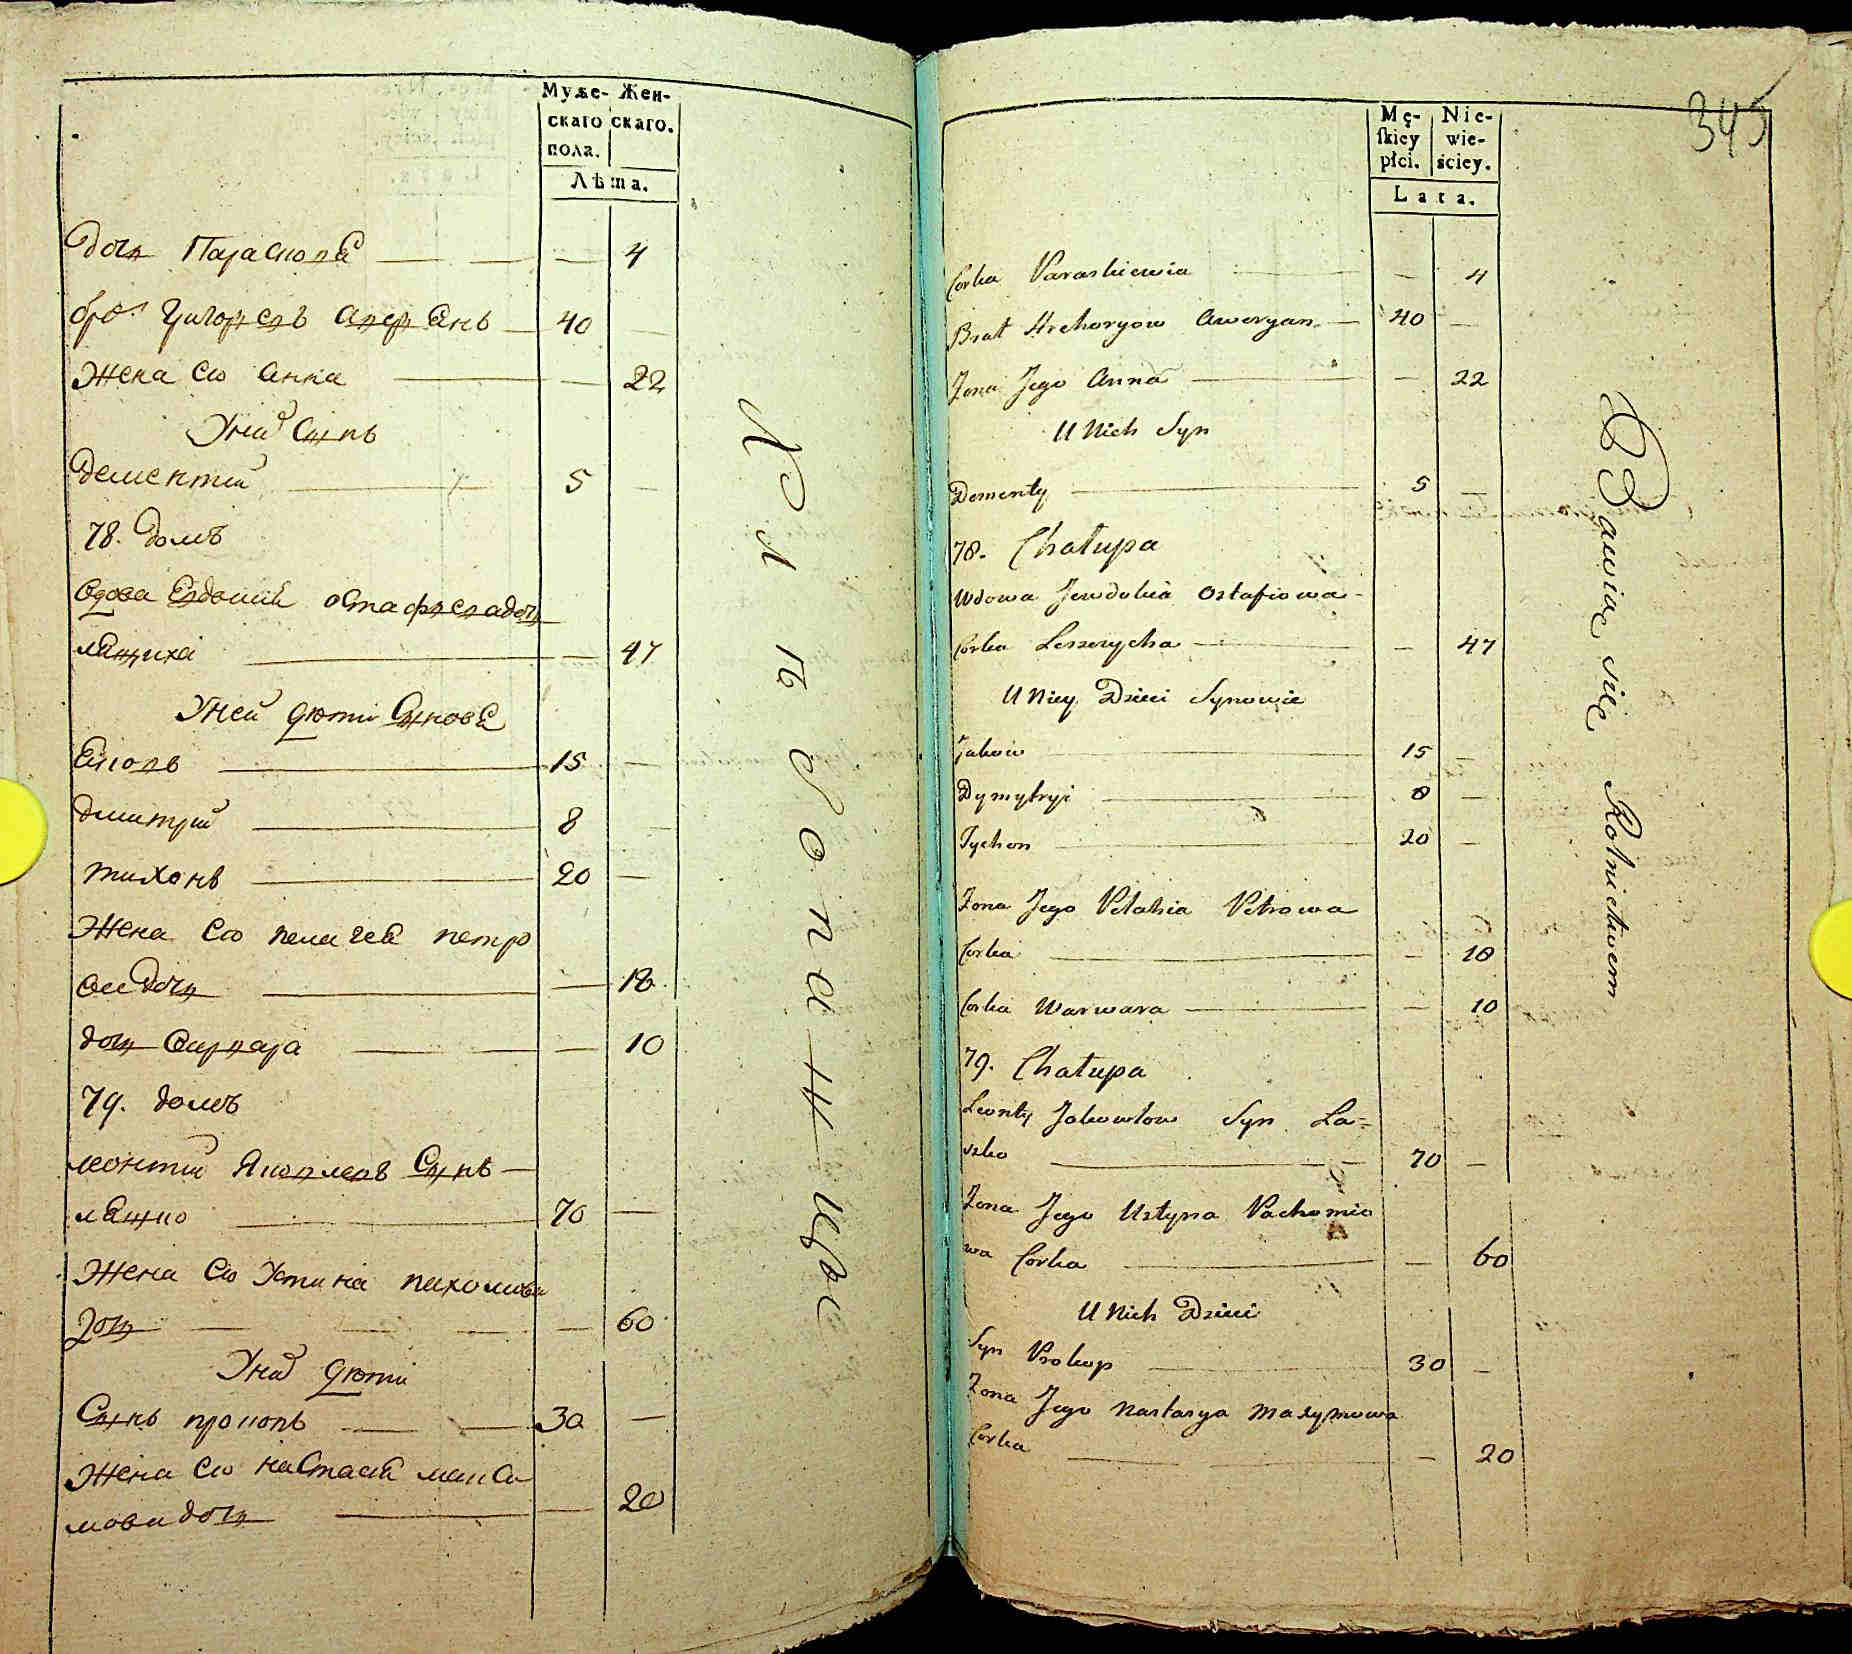 Муже- Жен-
скаго скаго.
пола.
Лѣта.
дочь Параскова — — 4
бра. Григорьевъ Аверьянъ — 40 —
Жена его Анна — — 22
У них Сынъ
дементий — 5 —
78. домъ
вдова Евдокия остафьева дочь
лещиха — — 47
У ней дѣти Сынове
Яковъ — 15 —
дмитрий — 8 —
тихонъ — 20 —
Жена его пелагея петро
ва дочь — — 18
дочь Варвара — — 10
79. домъ
леонтий Яковлевъ Сынъ —
лашко — 70 —
Жена его Устина пахомова
дочь — — 60
У них дѣти
Сынъ прокопъ — 30 —
Жена его настасия макси
мова дочь — — 20
345
Mę- Nie-
ſkiey wie-
płci. ściey.
Lata.
Corka Paraskiewia — — 4
Brat Hrehoryow Aweryan — 40 —
Zona Jego Anna — — 22
U Nich Syn
Dementy — 5 —
78. Chałupa
Wdowa Jewdokia Ostafiowa
Corka Leszczycha — — 47
U Niey Dzieci Synowie
Jakow — 15 —
Dymytryi — 8 —
Tychon — 20 —
Zona Jego Pelahia Petrowa
Corka — — 18
Corka Warwara — — 10
79. Chałupa
Leonty Jakowlow Syn La=
szko — 70 —
Zona Jego Ustyna Pachomio
wa Corka — — 60
U Nich Dzieci
Syn Prokop — 30 —
Zona Jego Nastasya Maxymowa
Corka — — 20
Bawią się Rolnictwem